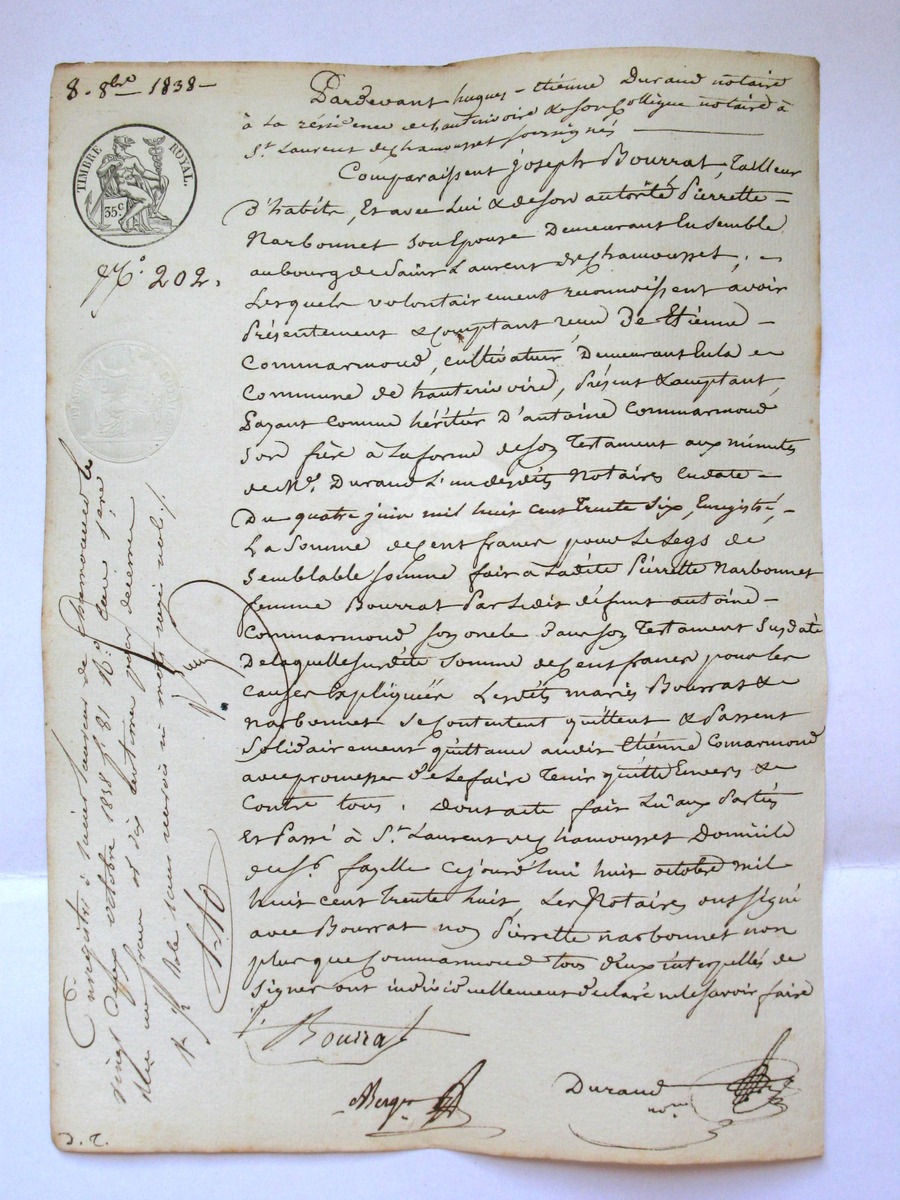 8. 8bre 1838 -
TIMBRE ROYAL.
35 c
No. 202.
Pardevant hugues - Etiénne Durand notaire
à La résidence de hauterivoire & son Collégue notaire à
St. Laurent de Chamousset soussignés
Comparaissent joseph Bourrat, Tailleur
d'habits, Et avec Lui & de son autorité Pierrette -
Narbonnet son Epouse Demeurant Ensemble
au bourg de Saint Laurent de Chamousset, -
Lesquels volontairement reconnoissent avoir
Présentement & comptant recu De Etiénne -
Commarmond, cultivateur, Demeurant En la
Commune de hauterivoire, Présent & acceptant,
Payant comme héritier D'antoine Commarmond
Son frère à La forme de son Testament aux minutes
de Me. Durand L'un desdits Notaires En date -
Du quatre juin mil huit cent trente Six, Enregistré, -
La Somme de Cent francs pour Le Legs de
Semblable Somme fait à Ladite Pierrette Narbonnet
femme Bourrat Par Ledit défunt antoine -
Commarmond son oncle Dans son Testament Susdaté
De laquelle susdite Somme de Cent francs pour les
causes Expliquées Lesdits mariés Bourrat &
Narbonnet se Contentent quittent & Passent
Solidairement quittance audit Etiénne Comarmond
avec promesse de Le faire Tenir quitte Envers &
Contre tous. Dont acte fait Lu aux Parties
Et Passé à St. Laurent de Chamousset Domicile
de Sr. fayelle Cejourd'hui huit octobre mil
huit cent trente huit, Les Notaires ont Signé
avec Bourrat non Pierrette narbonnet non
plus que Commarmond tous deux interpellés de
Signer ont individuellement déclaré ne le Savoir faire
Bourrat
Durand
nore
Enregistré à Saint Laurent de Chamousset le
vingt octobre 1838 fo 81
un franc et dix centimes pour decime